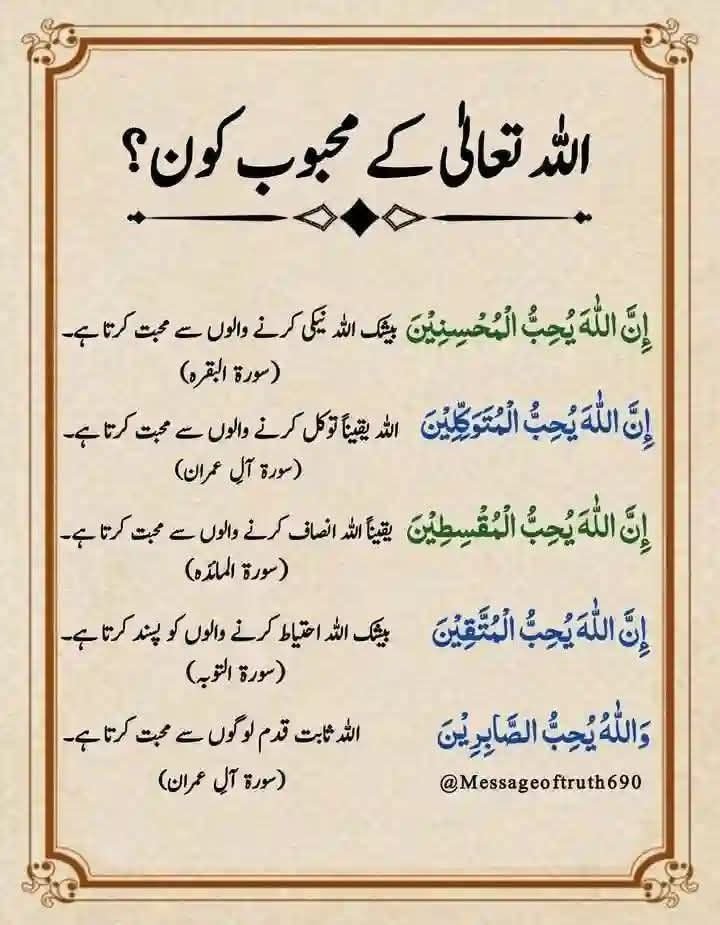 اللہ تعالیٰ کے محبوب کون؟
إِنَّ اللّٰهَ يُحِبُّ الْمُحْسِنِيْنَ بیشک اللہ نیکی کرنے والوں سے محبت کرتا ہے۔
(سورۃ البقرہ)
إِنَّ اللّٰهَ يُحِبُّ الْمُتَوَكِّلِيْنَ اللہ یقیناً توکل کرنے والوں سے محبت کرتا ہے۔
(سورۃ آلِ عمران)
إِنَّ اللّٰهَ يُحِبُّ الْمُقْسِطِيْنَ یقیناً اللہ انصاف کرنے والوں سے محبت کرتا ہے۔
(سورۃ المائدہ)
إِنَّ اللّٰهَ يُحِبُّ الْمُتَّقِيْنَ بیشک اللہ احتیاط کرنے والوں کو پسند کرتا ہے۔
(سورۃ التوبہ)
وَاللّٰهُ يُحِبُّ الصَّابِرِيْنَ اللہ ثابت قدم لوگوں سے محبت کرتا ہے۔
@Messageoftruth690 (سورۃ آلِ عمران)